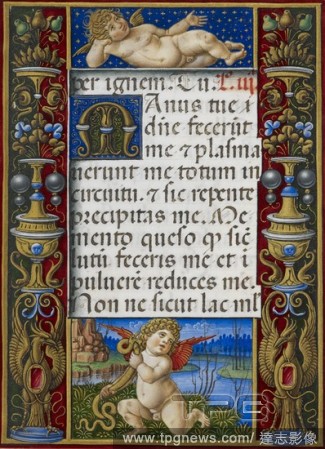 per ignem. Qu. L. iij
Manus tue
dñe fecerūt
me & plasma
uerunt me totum in
circuitu. & sic repente
precipitas me. Me
mento queso q̢ sic̄
lutū feceris me et i
puluerē reduces me.
Non ne sicut lac ml
TPG
www.tpgnews.com/ 達志影像